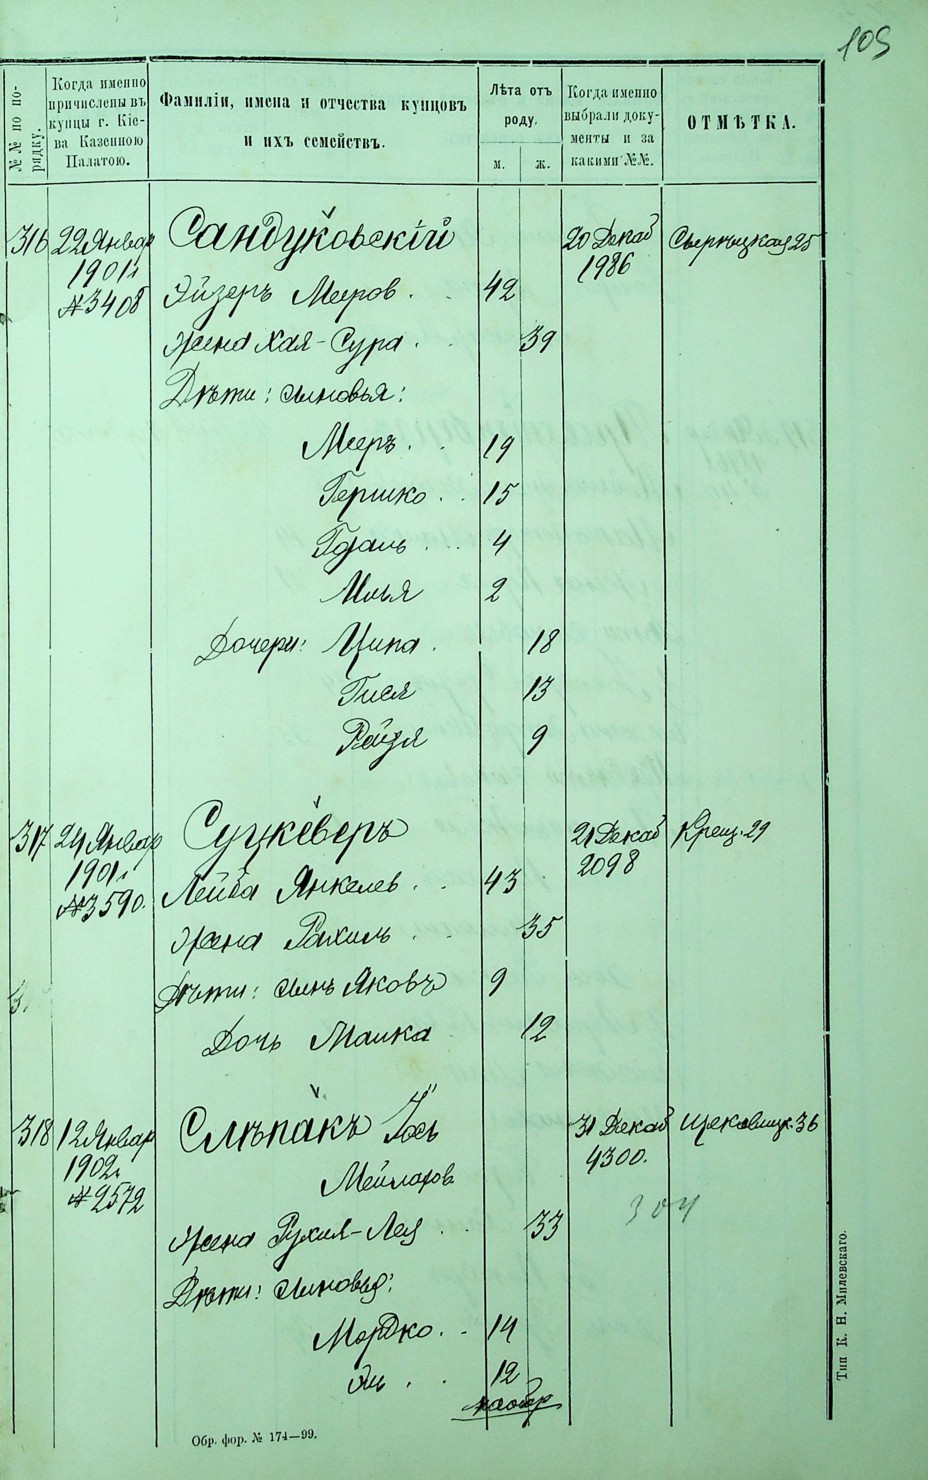 105
№№ по порядку.
Когда именно причислены въ купцы г. Кіева Казенною Палатою.
Фамиліи, имена и отчества купцовъ и ихъ семействъ.
Лѣта отъ роду.
м.
ж.
Когда именно выбрали документы и за какими №№.
ОТМѢТКА.
316 22 Январ Сандуковскій 20 Декаб
1901 г. 1986
№ 3408 Эйзеръ Мееров. 42
жена Хая-Сура 39
Дѣти: сыновья:
Мееръ 19
Гершко 15
Годаль 4
Илья 2
Дочери: Ципа 18
Гися 13
Ройзя 9
317 24 Январ Суцкеверъ 21 Декаб Крещ. 29
1901 г. 2098
№ 3590. Лейба Янкелев. 43
жена Рахиль 35
Дѣти: сынъ Яковъ 9
Дочь Малка 12
318 12 Январ Слѣпакъ Іось 31 Декаб Щекавицк. 36
1902 г. 4300.
№ 2572 Мейлахов
304
жена Рухля-Лея 33
Дѣти: сыновья:
Мордко 14
12
Обр. фор. № 174—99.
Тип К. Н. Милевскаго.